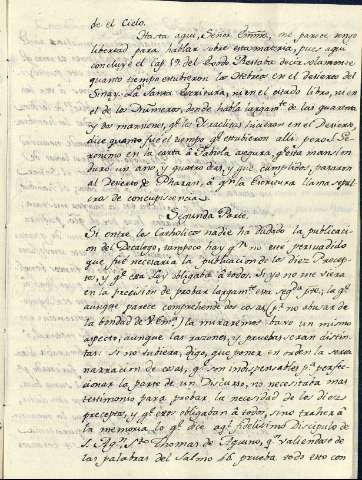 de el Cielo.
Hasta aqui, Señor Emmo, me parece tengo
libertad para hablar sobre esta materia, pues aqui
concluyè el cap. 19. del Restaba decir solamente
quanto tiempo estubieron los Hebreos en el desierto del
Sinay. La Santa Escritura, ni en el citado libro, ni en
el de los Numeros, donde habla largamte de las quarenta
y dos mansiones, qe los Israelitas hicieron en el Desierto,
dice quanto fue el tiempo qe estubieron alli: pero S. Ge-
ronimo en la carta à Fabiola asegura, qe esta mansion
duró un año, y quatro dias, y que cumplidos, pasaron
al Desierto de Pharan, à qn la Escritura llama sepul-
cros de concupiscencia.
Segunda Parte.
Si entre los Catholicos nadie ha dudado la publicaci-
on del Decalogo, tampoco hay qn no esté persuadido
que fue necesaria la publicacion de los diez Precep-
tos, y qe esta Ley obligaba à todos. Si yo no me viera
en la precision de probar largamte esta segda pte, la qe
aunque parece comprehende dos cosas (pa no abusar de
la bondad de V Emª) la miraremos baxo un mismo
aspecto, aunque las razones, y pruebas seran distin-
tas: Si no tubiera, digo, que poner en orden la seria
narracion de cosas, qe son indispensables pa perfec-
cionar la parte de un Discurso, no necesitaba mas
testimonio para probar la necesidad de los diez
preceptos, y qe estos obligaban à todos, sino traher à
la memoria lo qe dice aql fidelisimo Discipulo de
S. Agn Sto Thomas de Aquino, qn valiendose de
las palabras del Salmo prueba todo esto con